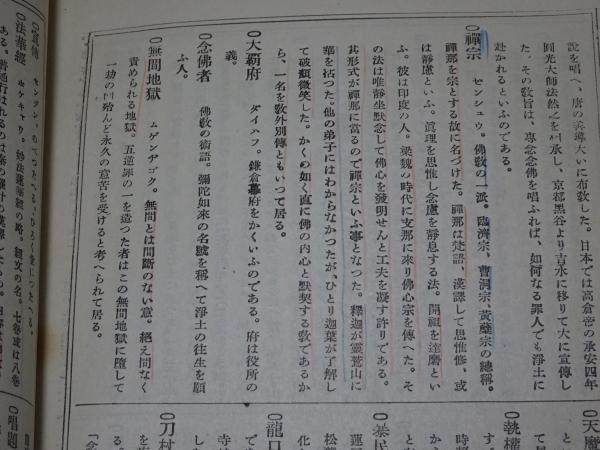 說を唱へ、唐の善導大いに布敎した。日本では高倉帝の承安四年
圓光大師法然之を相承し、京都黑谷より吉水に移りて大に宣傳し
た。その敎旨は、專念念佛を唱ふれば、如何なる罪人でも淨土に
赴かれるといふのである。
◎禪宗 センシュウ。佛敎の一派。臨濟宗、曹洞宗、黃蘗宗の總稱。
禪那を宗とする故に名づけた。禪那は梵語、漢譯して思惟修、或
は靜慮といふ。眞理を思惟し念慮を靜息する法。開祖を達磨とい
ふ。彼は印度の人。梁魏の時代に支那に來り佛心宗を傳へた。そ
の法は唯靜坐默念して佛心を發明せんと工夫を凝す許りである。
其形式が禪那に當るので禪宗といふ事となつた。釋迦が靈鷲山に
華を拈つた。他の弟子にはわからなかつたが、ひとり迦葉が了解し
て破顏微笑した。かくの如く直に佛の內心と默契する敎であるか
ら、一名を敎外別傳ともいつて居る。
◎大覇府 ダイハフ。鎌倉幕府をかくいふのである。府は役所の
義。
◎念佛者 佛敎の術語。彌陀如來の名號を稱へて淨土の往生を願
ふ人。
◎無間地獄 ムゲンヂゴク。無間とは間斷のない意。絕え間なく
責められる地獄。五逆罪の一を造つた者はこの無間地獄に墮して
一劫の間殆んど永久の意苦を受けると考へられて居る。
◎法華經 ホケキヤウ。妙法蓮華經の略。經文の名。七卷或は八卷
◎天魔
◎執權
◎龍口
◎刀杖
◎唱題